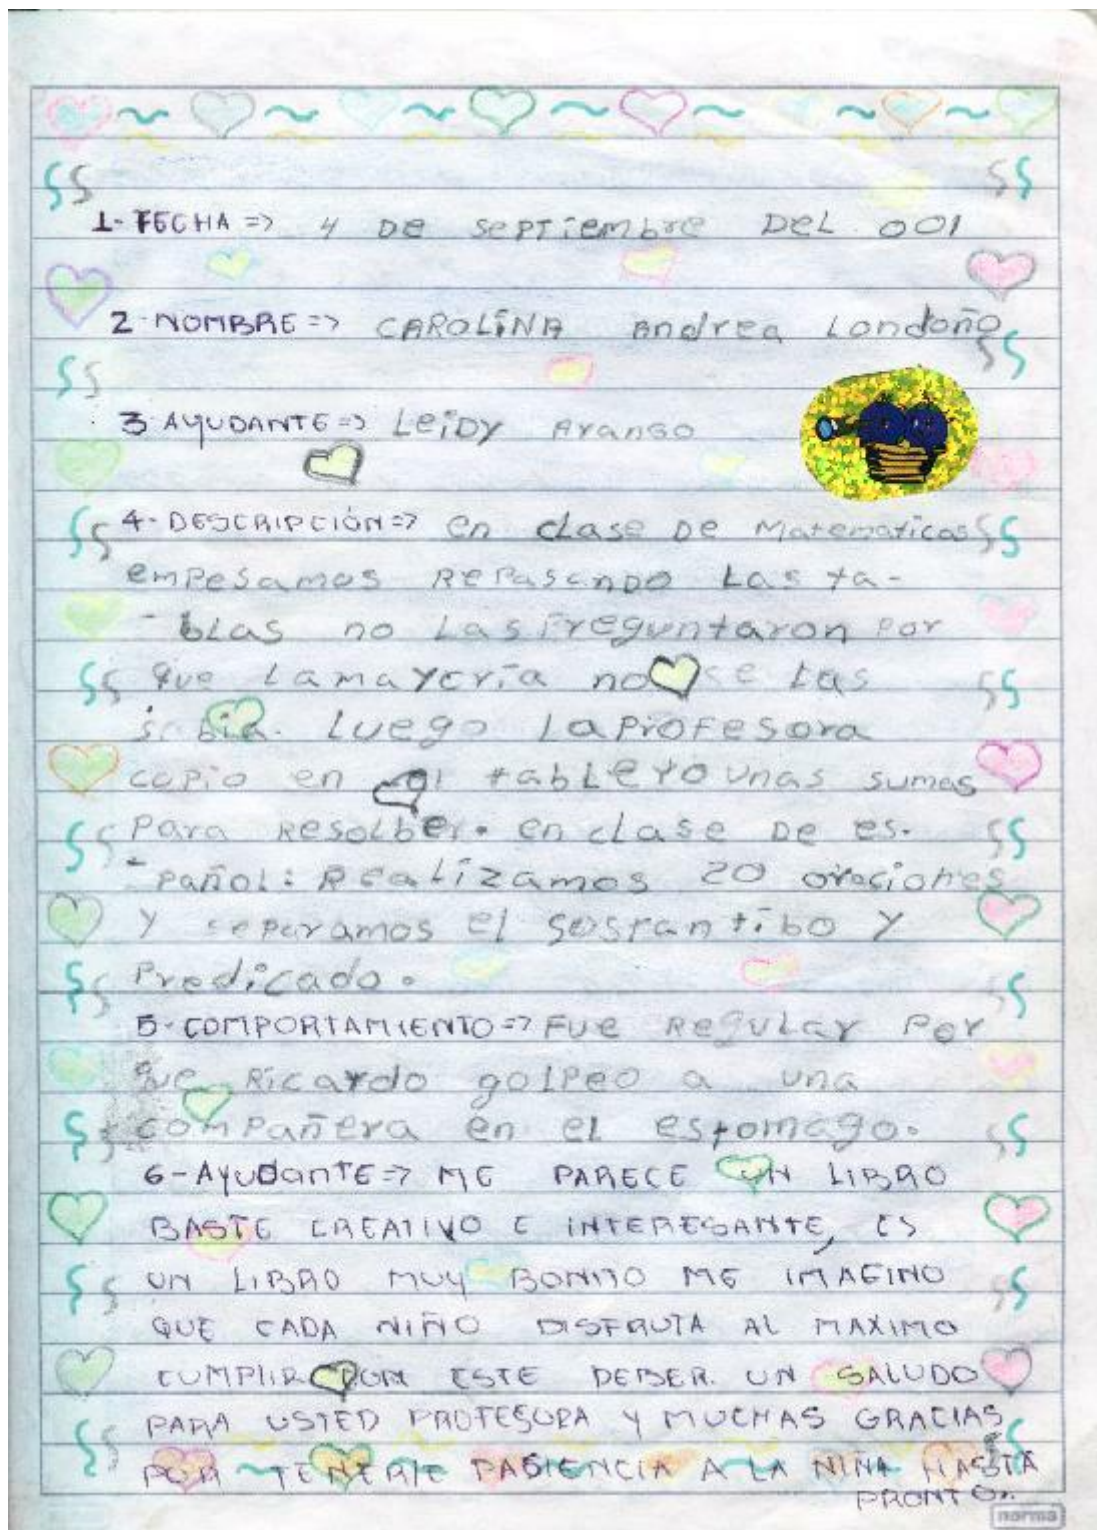 1-FECHA => 4 DE SEPTiembre DEL 001
2-NOMBRE => CAROLiNA Andrea Londoño
3-AYUDANTE => LeiDy Arango
4-DESCRIPCIÓN => en clase De Matematicas
emPesamos RePasando Las ta-
-blas no Las Preguntaron Por
que La mayoria no se Las
sabia. Luego La Profesora
copio en el tablero unas sumas
Para Resolber. en clase De es-
-pañol: Realizamos 20 oraciones
y separamos el sostantibo y
Predicado.
5-COMPORTAMIENTO => FUE ReguLar Por
que Ricardo golPeo a una
comPañera en el estomago.
6-AyuDanTE => ME PARECE UN LIBRO
BASTE CREATIVO E INTERESANTE, ES
UN LIBRO MUY BONITO ME IMAGINO
QUE CADA NIÑO DISFRUTA AL MAXIMO
CUMPLIR CON ESTE DEBER. UN SALUDO
PARA USTED PROFESORA Y MUCHAS GRACIAS
POR TENERLE PASIENCIA A LA NIÑA HASTA
PRONTO.
norma